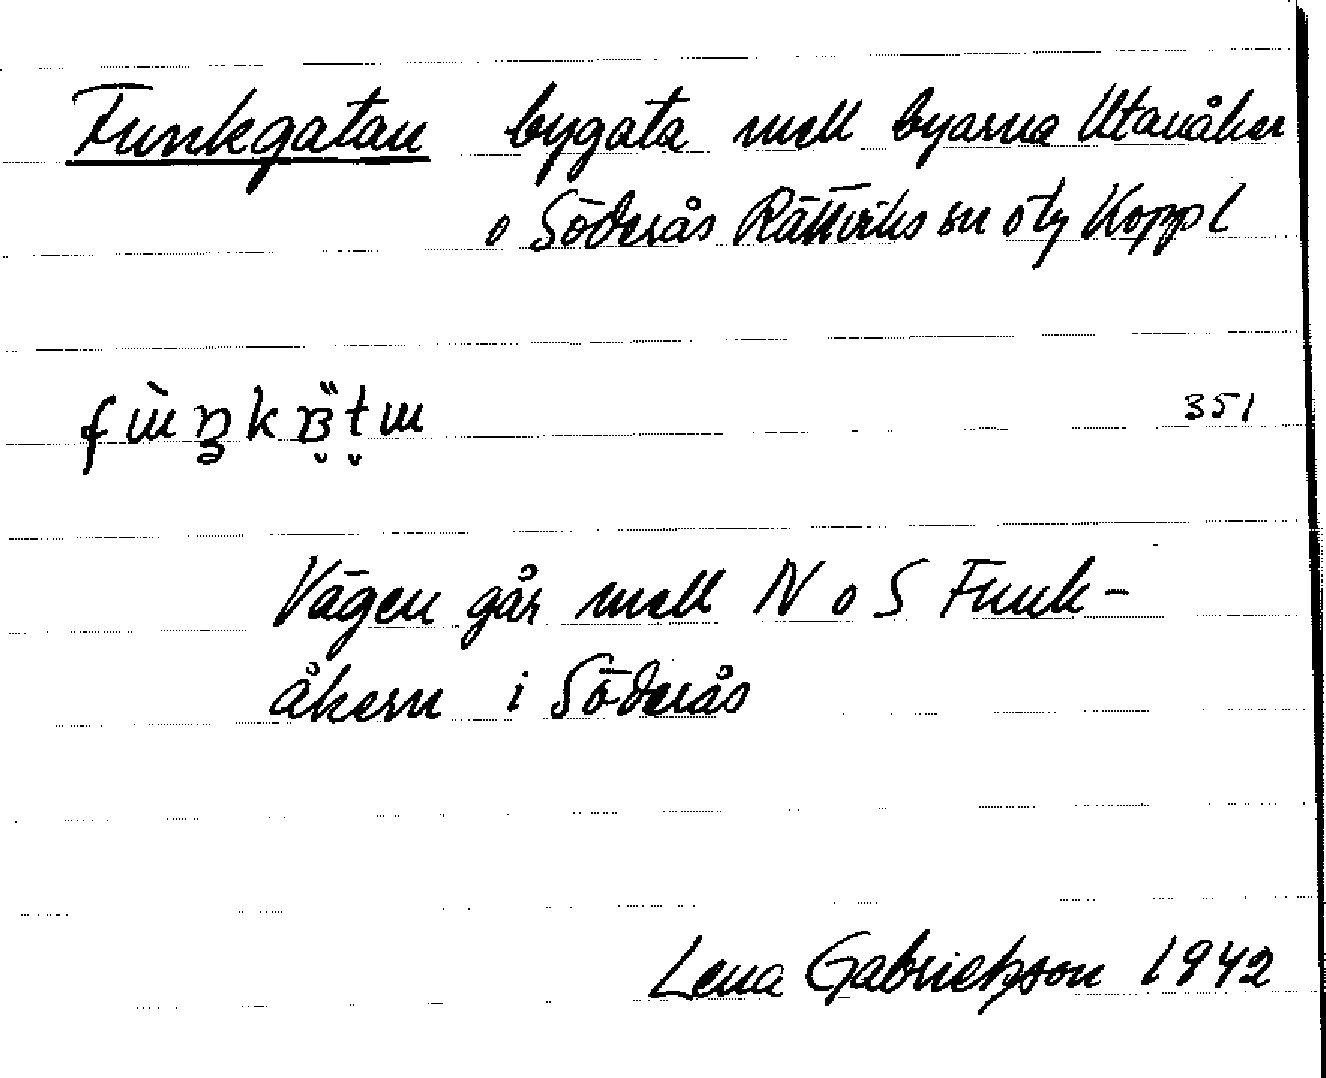 Funkgatan bygata mell byarna Utanåker
o Söderås Rättviks sn öty Koppl
351
Vägen går mell N o S Funk-
åkern i Söderås
Lena Gabrielsson 1942